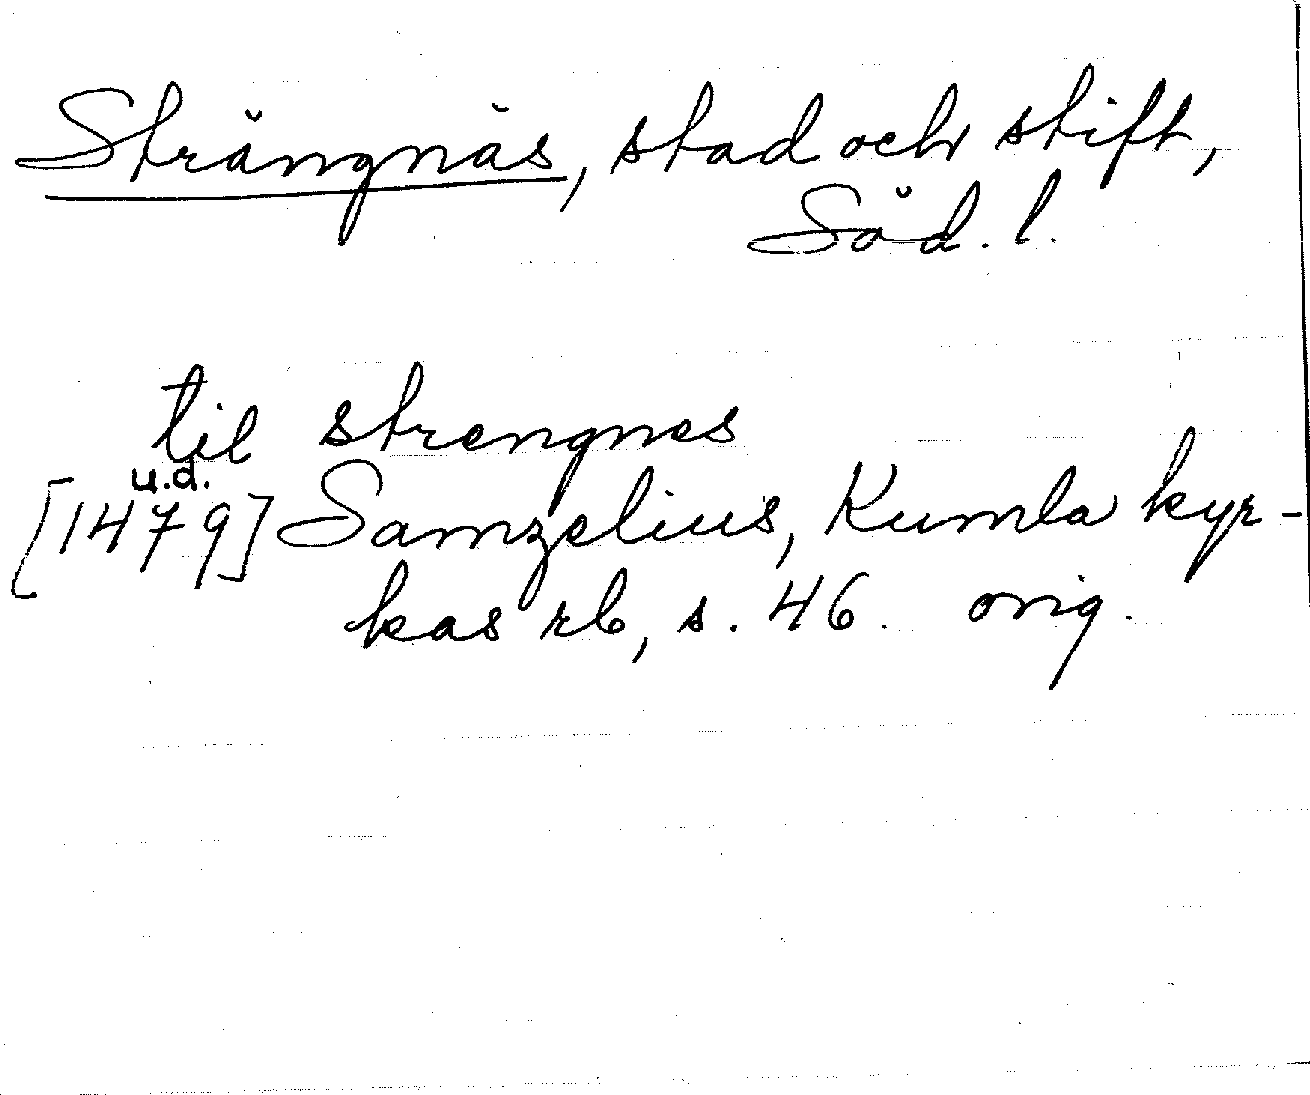 Strängnäs, stad och stift,
Söd. l.
til strengnes
u.d.
[1479] Samzelius, Kumla kyr-
kas rb, s. 46. orig.